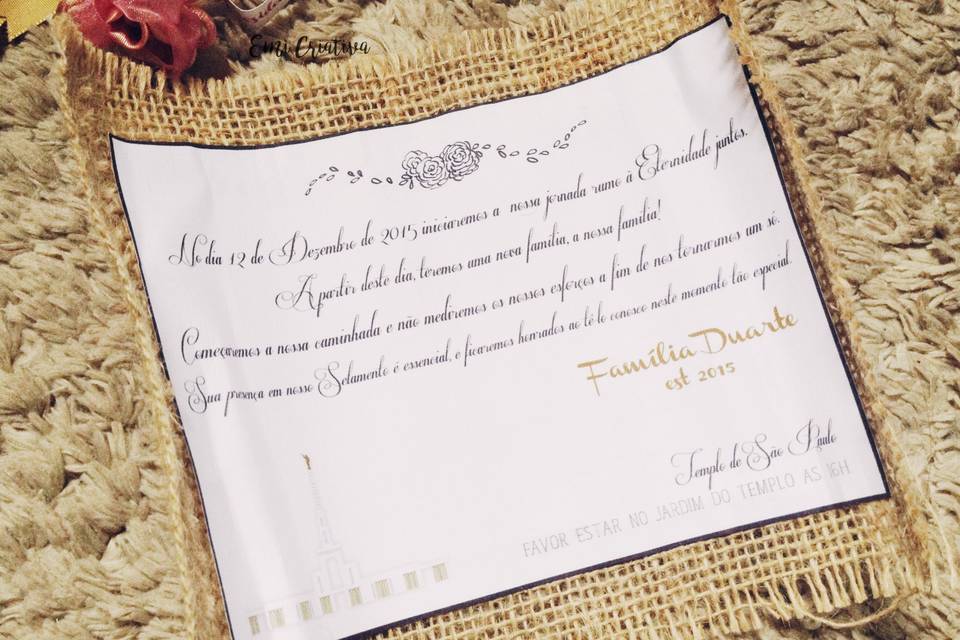 Emi Criativa
No dia 12 de Dezembro de 2015 iniciaremos a nossa jornada rumo à Eternidade juntos.
A partir deste dia, teremos uma nova família, a nossa família!
Começaremos a nossa caminhada e não mediremos os nossos esforços a fim de nos tornarmos um só.
Sua presença em nosso Selamento é essencial, e ficaremos honrados ao tê-lo conosco neste momento tão especial.
Família Duarte
est 2015
Templo de São Paulo
FAVOR ESTAR NO JARDIM DO TEMPLO AS 16H.